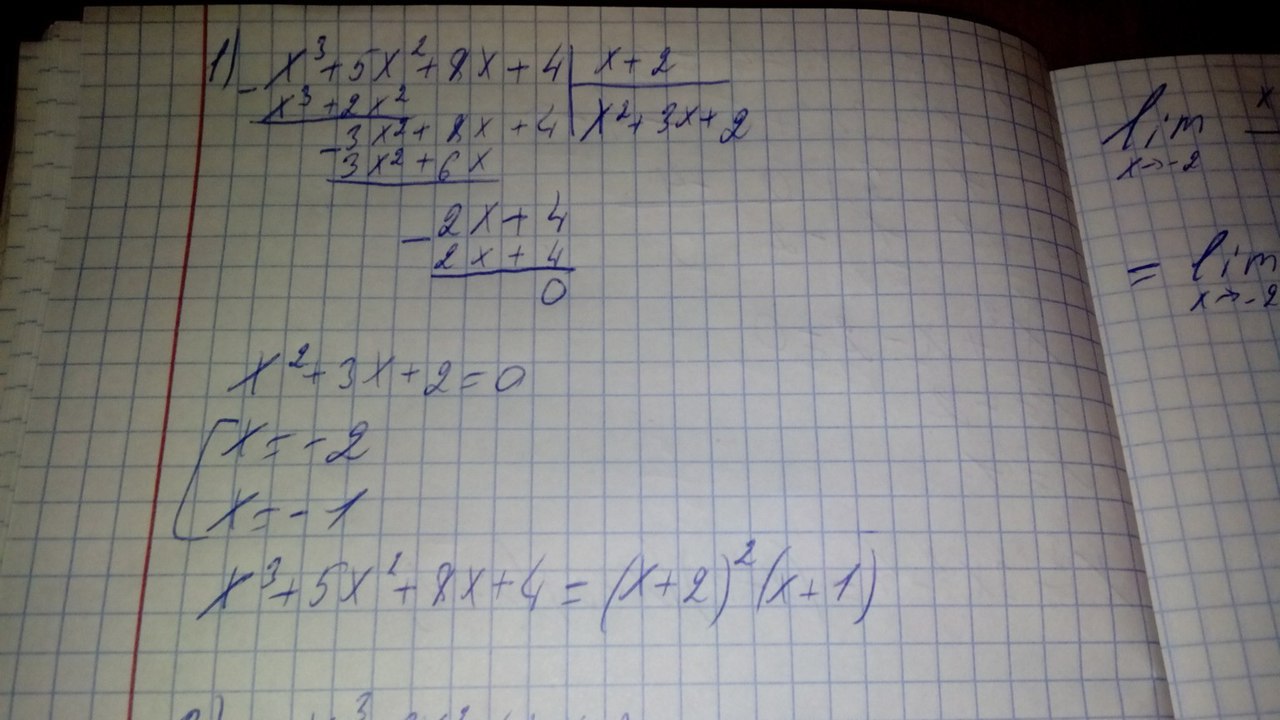 1) x³+5x²+8x+4 | x+2
- x³+2x² | x²+3x+2
3x²+8x+4
- 3x²+6x
2x+4
- 2x+4
0
x²+3x+2=0
[ x=-2
x=-1
x³+5x²+8x+4=(x+2)²(x+1)
lim x
x→-2
= lim
x→-2